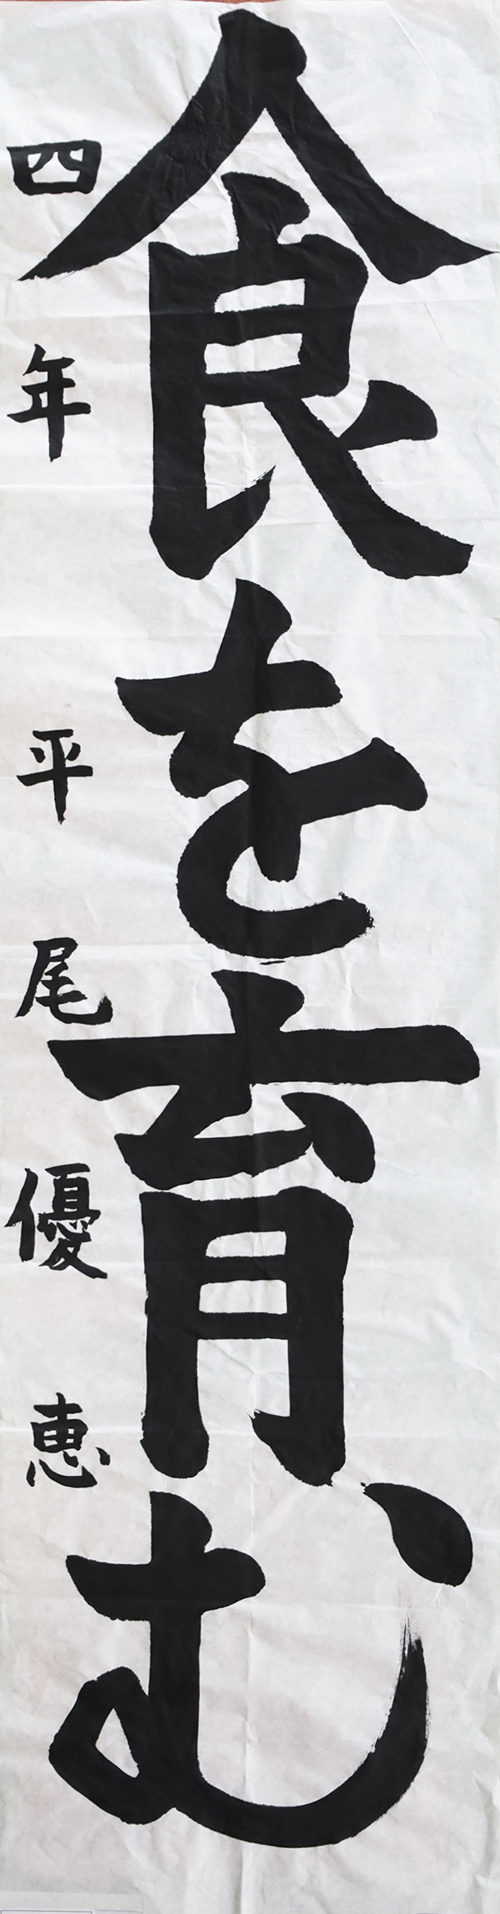 食を育む
四年 平尾優恵